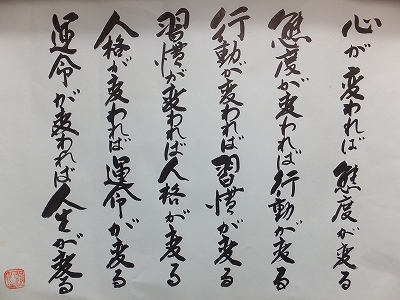 心が変われば態度が変る
態度が変われば行動が変る
行動が変われば習慣が変る
習慣が変われば人格が変る
人格が変われば運命が変る
運命が変われば人生が変る